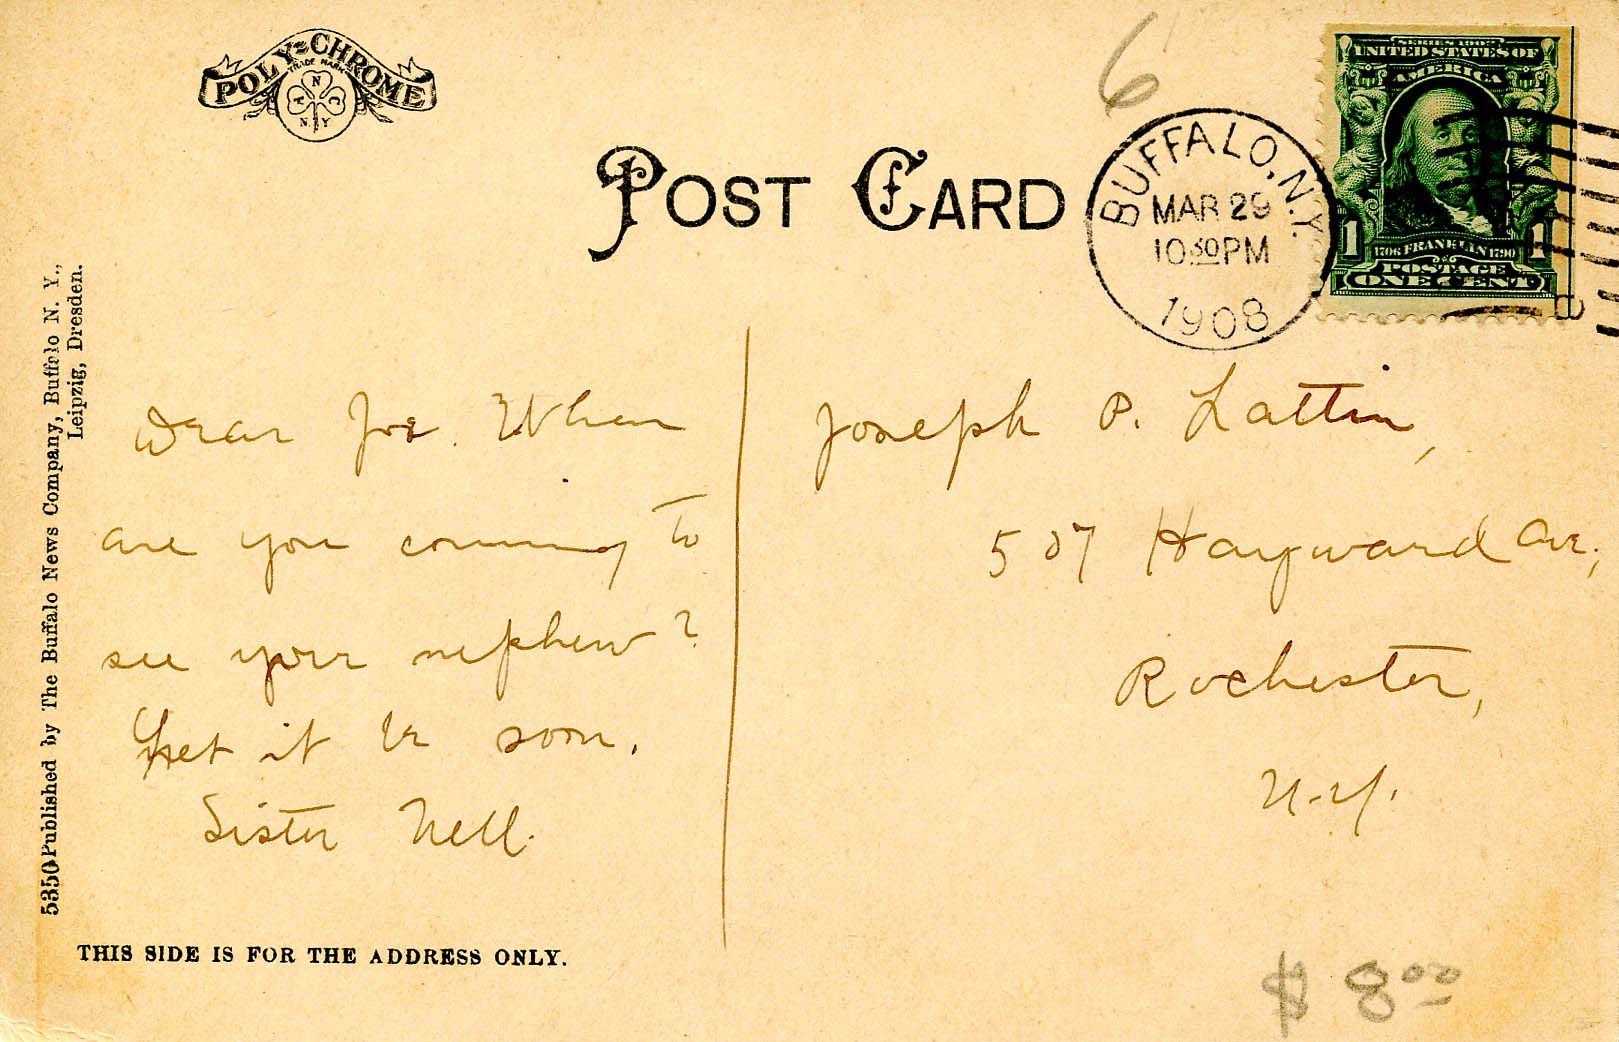 POLY-CHROME
TRADE MARK
A N C
N. Y
POST CARD
6
BUFFALO, N.Y.
MAR 29
10 30 PM
1908
SERIES 1902
UNITED STATES OF
AMERICA
1 1706 FRANKLIN 1790 1
POSTAGE
ONE CENT
5350 Published by The Buffalo News Company, Buffalo N. Y.,
Leipzig, Dresden.
Dear Joe. When
are you comming to
see your nephew?
Let it be soon.
Sister Nell.
Joseph P. Lattin,
507 Hayward Ave,
Rochester,
N.Y.
THIS SIDE IS FOR THE ADDRESS ONLY.
$ 8.00